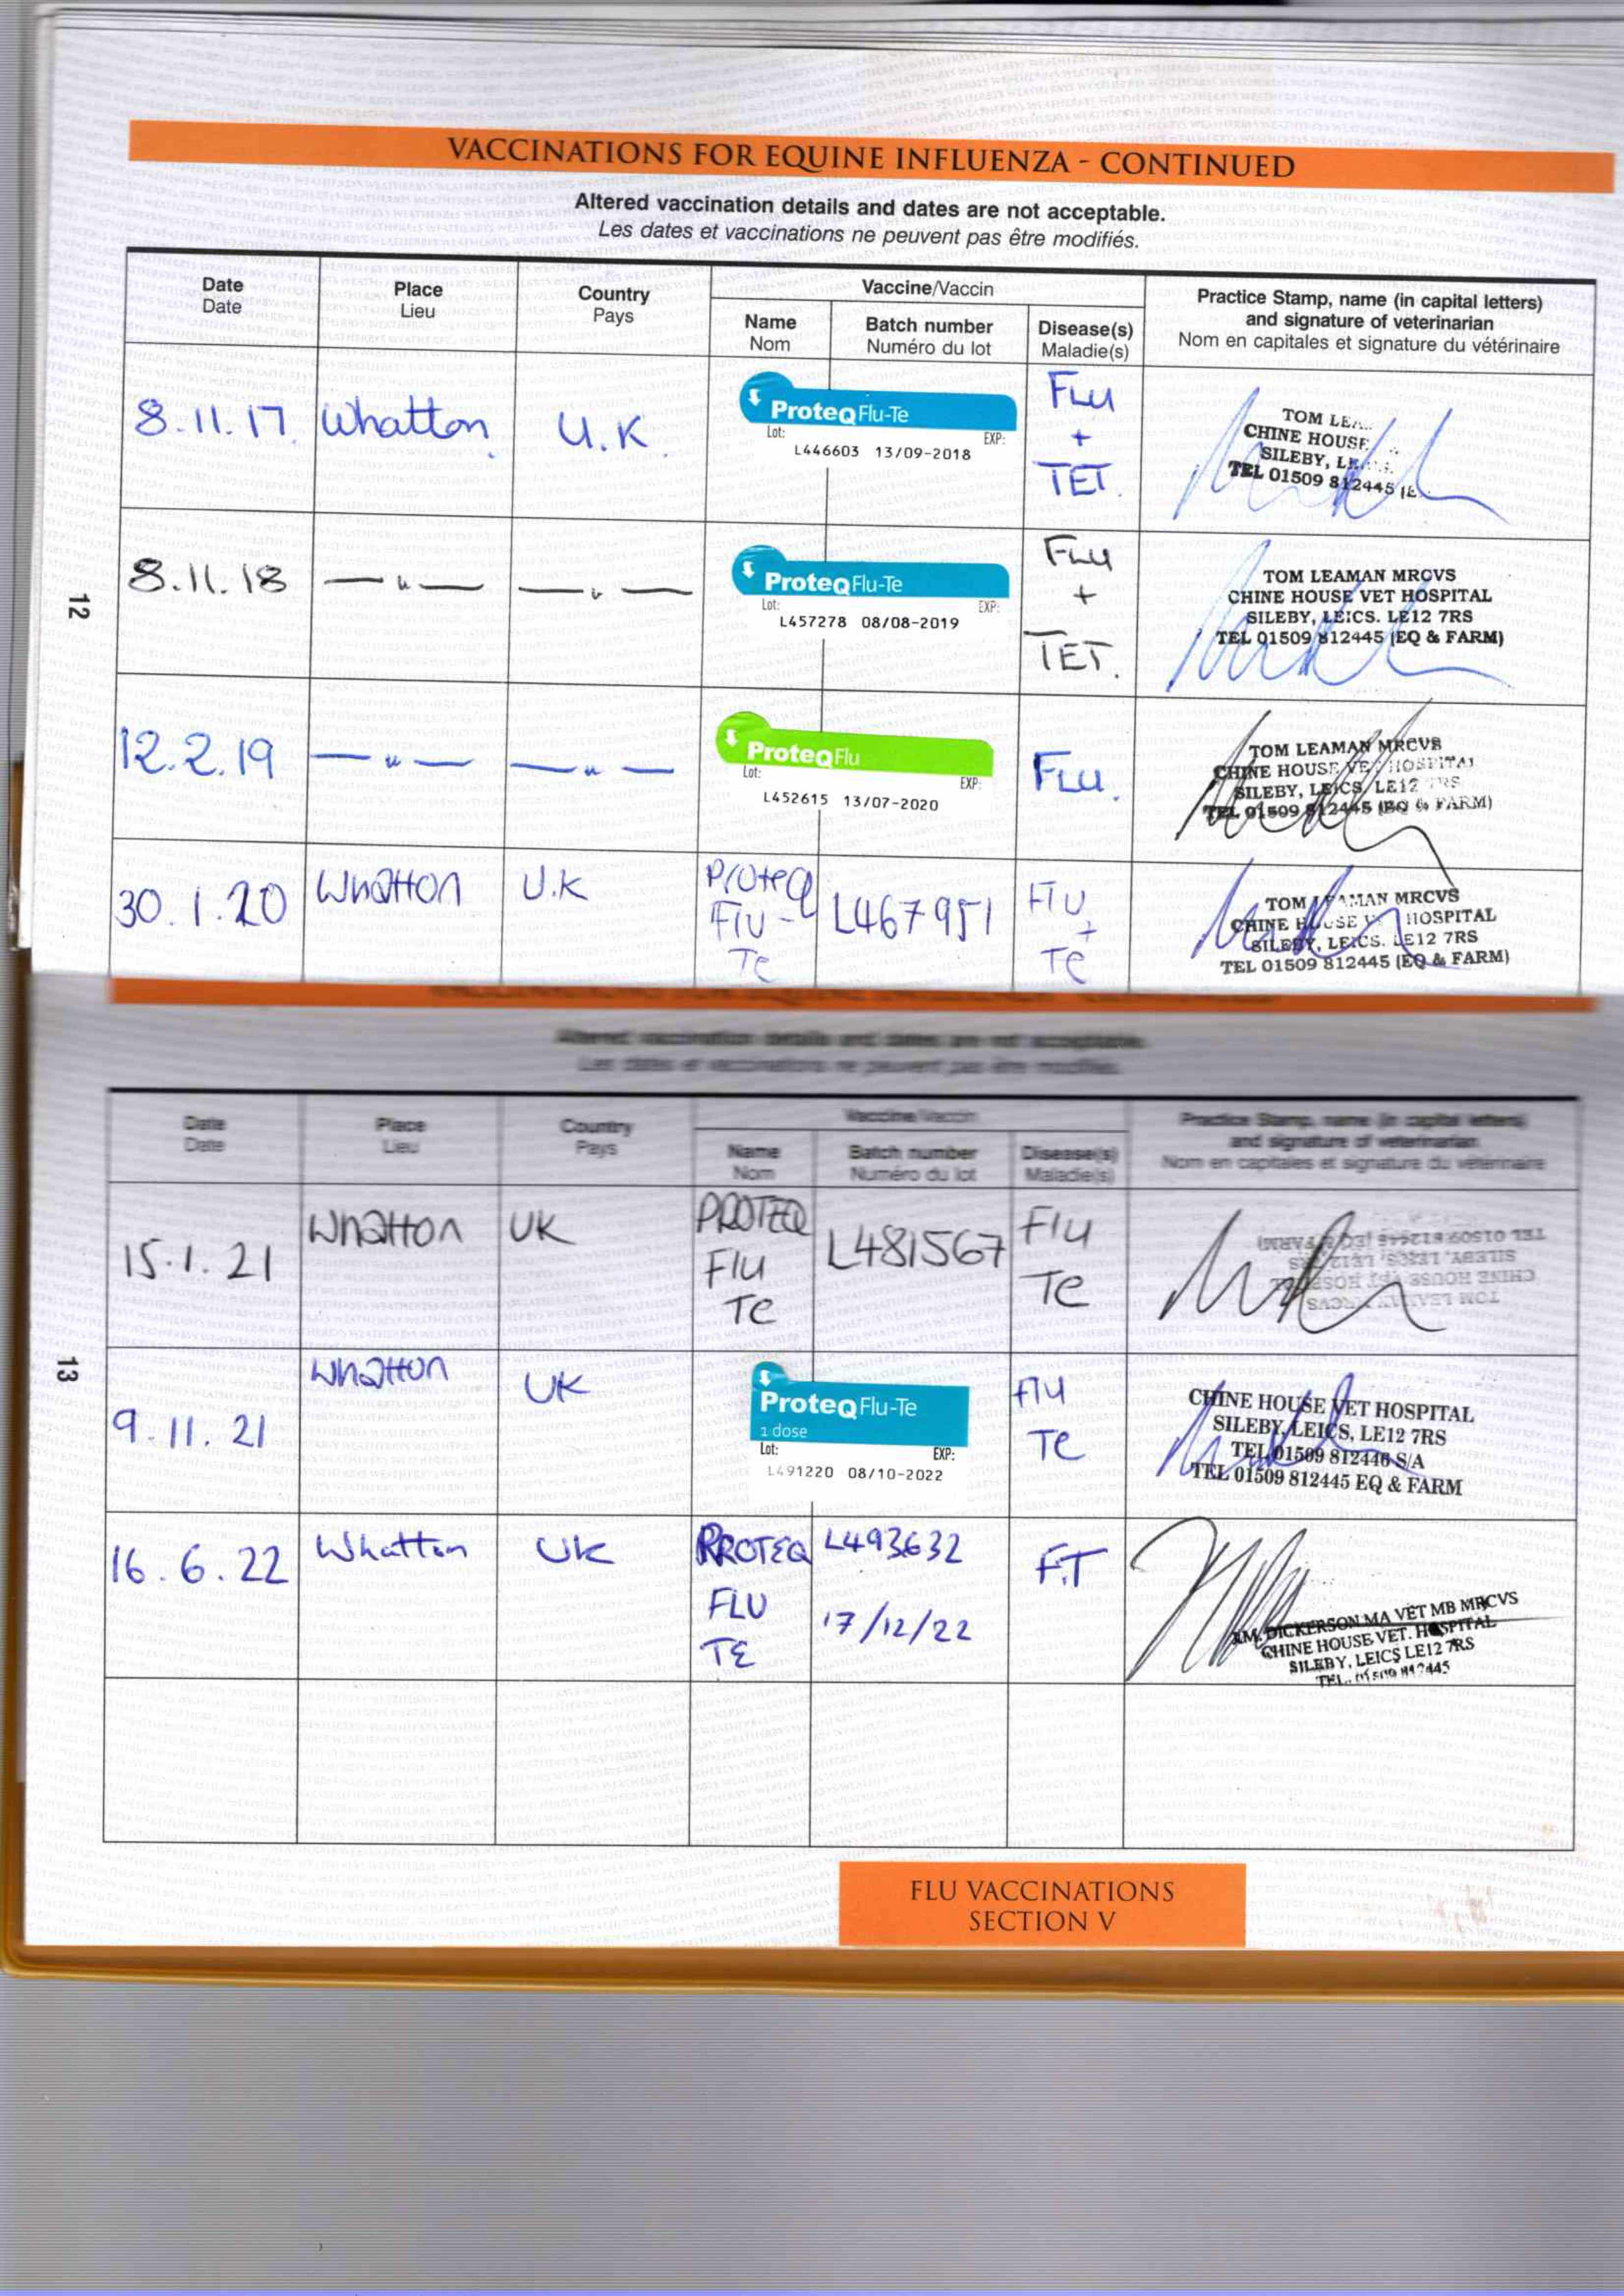 VACCINATIONS FOR EQUINE INFLUENZA - CONTINUED
Altered vaccination details and dates are not acceptable.
Les dates et vaccinations ne peuvent pas être modifiés.
Date
Date
Place
Lieu
Country
Pays
Vaccine/Vaccin
Name
Nom
Batch number
Numéro du lot
Disease(s)
Maladie(s)
Practice Stamp, name (in capital letters)
and signature of veterinarian
Nom en capitales et signature du vétérinaire
8.11.17. Whatton U.K
ProteqFlu-Te
Lot: EXP:
L446603 13/09-2018
FLU
+
TET.
TOM
CHINE HOUSE
SILEBY,
TEL 01509 812445
8.11.18 — " — — " —
ProteqFlu-Te
Lot: EXP:
L457278 08/08-2019
FLU
+
TET.
TOM LEAMAN MRCVS
CHINE HOUSE VET HOSPITAL
SILEBY, LEICS. LE12 7RS
TEL 01509 812445 (EQ & FARM)
12.2.19 — " — — " —
ProteqFlu
Lot: EXP:
L452615 13/07-2020
FLU.
TOM LEAMAN MRCVS
CHINE HOUSE VET HOSPITAL
SILEBY, LEICS, LE12 7RS
TEL 01509 812445 (EQ & FARM)
30.1.20 Whatton U.K
Proteq
Flu-
Te
L467951
Flu
+
Te
TOM LEAMAN MRCVS
CHINE HOUSE VET HOSPITAL
SILEBY, LEICS. LE12 7RS
TEL 01509 812445 (EQ & FARM)
12
Altered vaccination details and dates are not acceptable.
Les dates et vaccinations ne peuvent pas être modifiés.
Date
Date
Place
Lieu
Country
Pays
Vaccine/Vaccin
Name
Nom
Batch number
Numéro du lot
Disease(s)
Maladie(s)
Practice Stamp, name (in capital letters)
and signature of veterinarian
Nom en capitales et signature du vétérinaire
15.1.21 Whatton UK
PROTEQ
Flu
Te
L481567
Flu
Te
TEL 01509 812445 (EQ & FARM)
SILEBY, LEICS, LE12 7RS
CHINE HOUSE VET HOSPITAL
TOM LEAMAN MRCVS
9.11.21 Whatton UK
ProteqFlu-Te
1 dose
Lot: EXP:
L491220 08/10-2022
Flu
Te
CHINE HOUSE VET HOSPITAL
SILEBY, LEICS, LE12 7RS
TEL 01509 812446 S/A
TEL 01509 812445 EQ & FARM
16.6.22 Whatton UK
PROTEQ
FLU
TE
L493632
17/12/22
F.T
DICKERSON MA VET MB MRCVS
CHINE HOUSE VET. HOSPITAL
SILEBY, LEICS LE12 7RS
TEL. 01509 812445
13
FLU VACCINATIONS
SECTION V